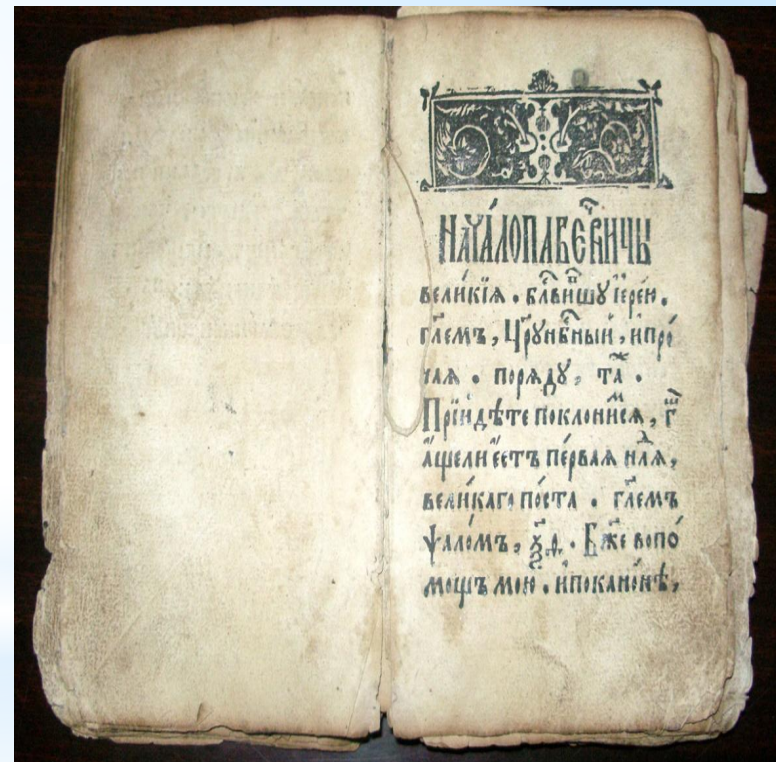 НАЧА́ЛОПАВЕЧЕ́РНИЦЫ
вели́кїѧ . бл҃ви́вшꙋ і҆ере́ю .
гл҃емъ , Цр҃ю нбⷭ҇ный , и҆про́
чаѧ . порѧдꙋ , та́ж .
Прїиди́те поклони́мсѧ , г҃
а҆́щели є҆́стъ пе́рваѧ нлⷣѧ ,
вели́каго по́ста . гл҃емъ
ѱало́мъ , ѯ҃ѳ . Бж҃е вопо́
мощъ мою̀ . и҆поканѡ́нѣ ,